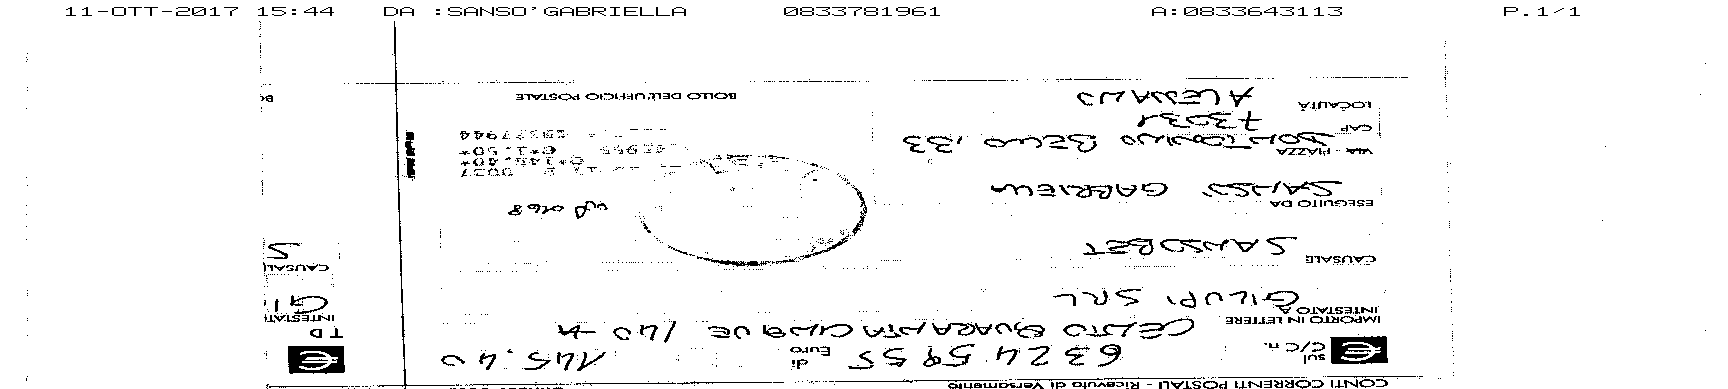 11-OTT-2017 15:44 DA :SANSO'GABRIELLA 0833781961 A:0833643113 P.1/1
CONTI CORRENTI POSTALI - Ricevuta di Versamento
sul C/C n. 63245955 di Euro 145.40
TD
IMPORTO IN LETTERE CENTO QUARANTACINQUE /40
INTESTATO A GILUPI SRL
INTESTAT
GI
CAUSALE SANSOBET
CAUSAL
S
ESEGUITO DA SANSO' GABRIELLA
VIA - PIAZZA DON TONINO BELLO, 33
CAP 73031
LOCALITÀ ALESSANO
BOLLO DELL'UFFICIO POSTALE
BO
0027
€*145,40*
€*1,50*